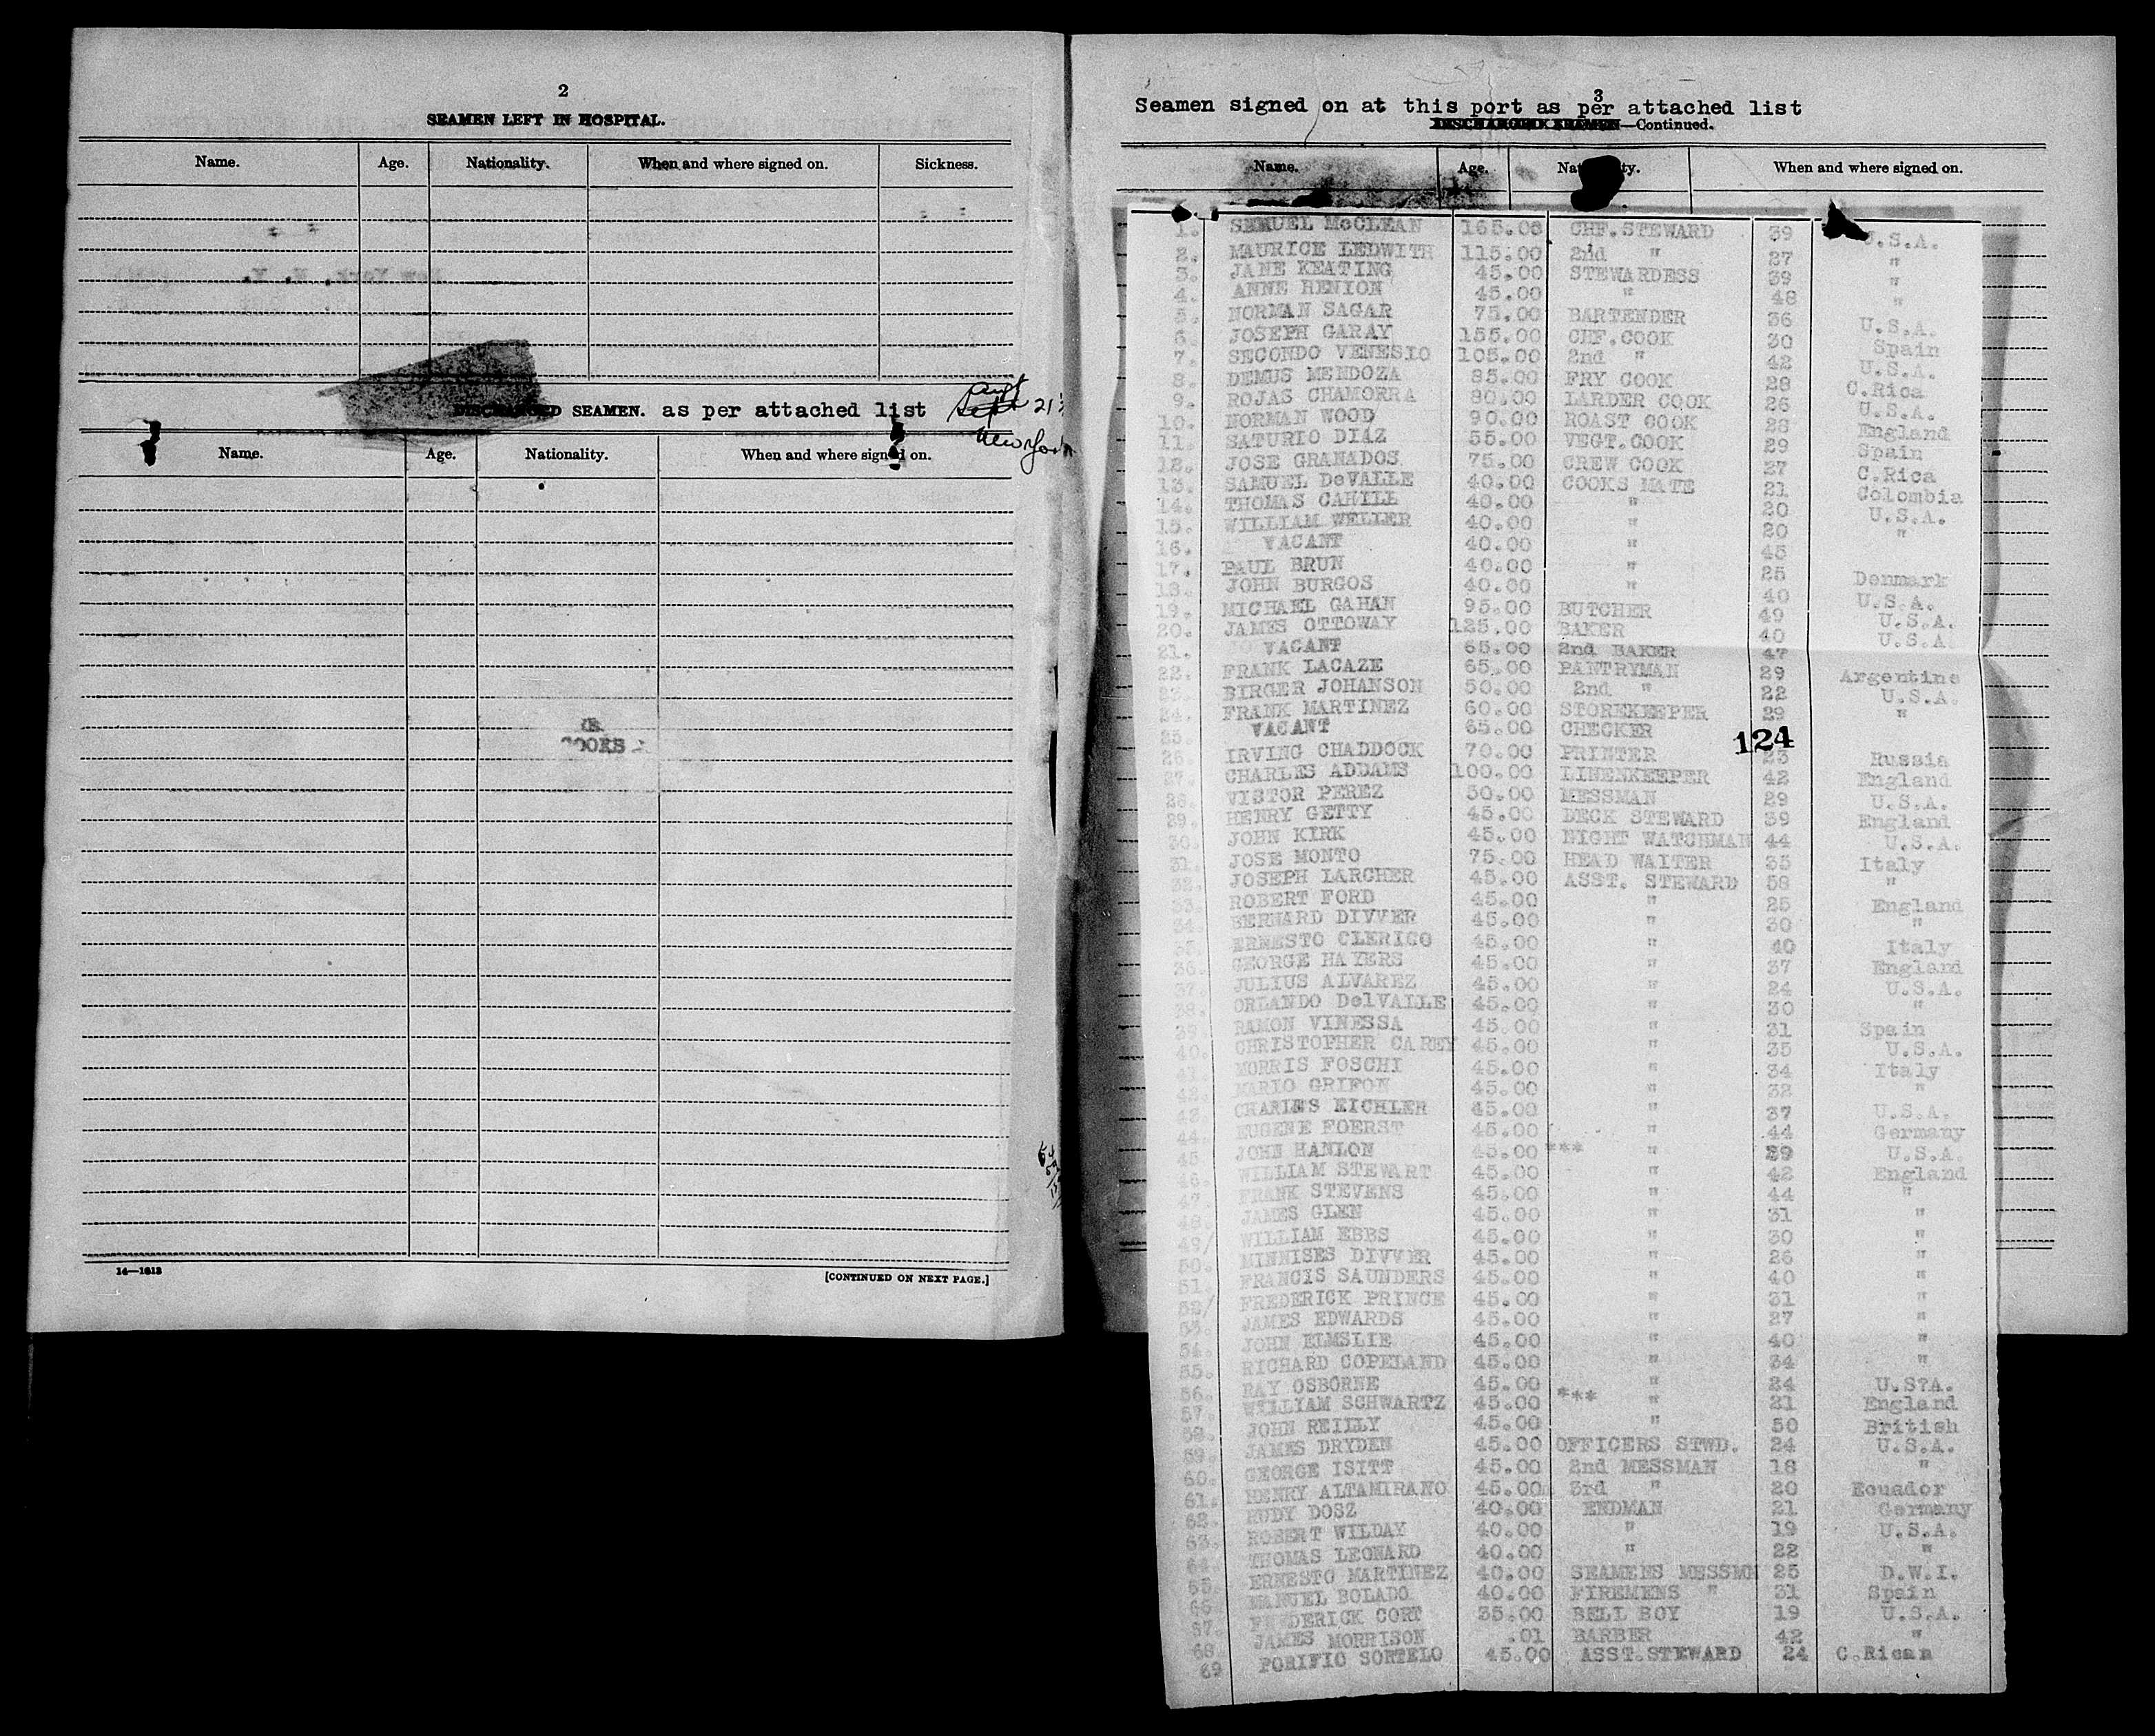 2
SEAMEN LEFT IN HOSPITAL.
Name. Age. Nationality. When and where signed on. Sickness.
DISCHARGED SEAMEN. as per attached list Sept Augt 21
New York
Name. Age. Nationality. When and where signed on.
COOKS
14—1613
[CONTINUED ON NEXT PAGE.]
3
Seamen signed on at this port as per attached list
DISCHARGED SEAMEN—Continued.
Name. Age. Nationality. When and where signed on.
1. SEMUEL McCLEAN 165.00 CHF.STEWARD 39 U.S.A.
2. MAURICE LEDWITH 115.00 2nd " 27 "
3. JANE KEATING 45.00 STEWARDESS 39 "
4. ANNE HENION 45.00 " 48 "
5. NORMAN SAGAR 75.00 BARTENDER 36 U.S.A.
6. JOSEPH GARAY 155.00 CHF.COOK 30 Spain
7. SECONDO VENESIO 105.00 2nd " 42 U.S.A.
8. DEMUS MENDOZA 85.00 FRY COOK 28 C.Rica
9. ROJAS CHAMORRA 80.00 LARDER COOK 26 U.S.A.
10. NORMAN WOOD 90.00 ROAST COOK 28 England
11. SATURIO DIAZ 55.00 VEGT.COOK 29 Spain
12. JOSE GRANADOS 75.00 CREW COOK 27 C.Rica
13. SAMUEL DeVALLE 40.00 COOKS MATE 21 Colombia
14. THOMAS CAHILL 40.00 " 20 U.S.A.
15. WILLIAM WELLER 40.00 " 20 "
16. VACANT 40.00 " 45
17. PAUL BRUN 40.00 " 25 Denmark
18. JOHN BURGOS 40.00 " 40 U.S.A.
19. MICHAEL GAHAN 95.00 BUTCHER 49 U.S.A.
20. JAMES OTTOWAY 125.00 BAKER 40 U.S.A
21. VACANT 65.00 2nd BAKER 47
22. FRANK LACAZE 65.00 PANTRYMAN 29 Argentine
23. BIRGER JOHANSON 50.00 2nd " 22 U.S.A.
24. FRANK MARTINEZ 60.00 STOREKEEPER 29 "
25. VACANT 65.00 CHECKER
124
26. IRVING CHADDOCK 70.00 PRINTER 23 Russia
27. CHARLES ADDAMS 100.00 LINENKEEPER 42 England
28. VISTOR PEREZ 50.00 MESSMAN 29 U.S.A.
29. HENRY GETTY 45.00 DECK STEWARD 39 England
30. JOHN KIRK 45.00 NIGHT WATCHMAN 44 U.S.A.
31. JOSE MONTO 75.00 HEAD WAITER 35 Italy
32. JOSEPH LARCHER 45.00 ASST. STEWARD 58 "
33. ROBERT FORD 45.00 " 25 England
34. BERNARD DIVVER 45.00 " 30 "
35. ERNESTO CLERICO 45.00 " 40 Italy
36. GEORGE HAYERS 45.00 " 37 England
37. JULIUS ALVAREZ 45.00 " 24 U.S.A.
38. ORLANDO DelVALLE 45.00 " 30 "
39. RAMON VINESSA 45.00 " 31 Spain
40. CHRISTOPHER CAREY 45.00 " 35 U.S.A.
41. MORRIS FOSCHI 45.00 " 34 Italy
42. MARIO GRIFON 45.00 " 32 "
43. CHARLES EICHLER 45.00 " 37 U.S.A.
44. EUGENE FOERST 45.00 " 44 Germany
45 JOHN HANLON 45.00 *** " 29 U.S.A.
46. WILLIAM STEWART 45.00 " 42 England
47. FRANK STEVENS 45.00 " 44 "
48. JAMES GLEN 45.00 " 31 "
49/ WILLIAM EBBS 45.00 " 30 "
50. MINNISES DIVVER 45.00 " 26 "
51. FRANCIS SAUNDERS 45.00 " 40 "
52/ FREDERICK PRINCE 45.00 " 31 "
53. JAMES EDWARDS 45.00 " 27 "
54. JOHN ELMSLIE 45.00 " 40 "
55. RICHARD COPELAND 45.00 " 34 "
56. RAY OSBORNE 45.00 " 24 U.S?A.
57. WILLIAM SCHWARTZ 45.00 *** " 21 England
58. JOHN REILLY 45.00 " 50 British
59. JAMES DRYDEN 45.00 OFFICERS STWD. 24 U.S.A.
60. GEORGE ISITT 45.00 2nd MESSMAN 18 "
61. HENRY ALTAMIRANO 45.00 3rd " 20 Ecuador
62. RUDY DOSZ 40.00 ENDMAN 21 Germany
63. ROBERT WILDAY 40.00 " 19 U.S.A.
64. THOMAS LEONARD 40.00 " 22 "
65. ERNESTO MARTINEZ 40.00 SEAMENS MESSMN 25 D.W.I.
66 MANUEL BOLADO 40.00 FIREMENS " 31 Spain
67. FREDERICK CORT 35.00 BELL BOY 19 U.S.A.
68. JAMES MORRISON .01 BARBER 42 "
69 PORIFIO SORTELO 45.00 ASST.STEWARD 24 C.Rican